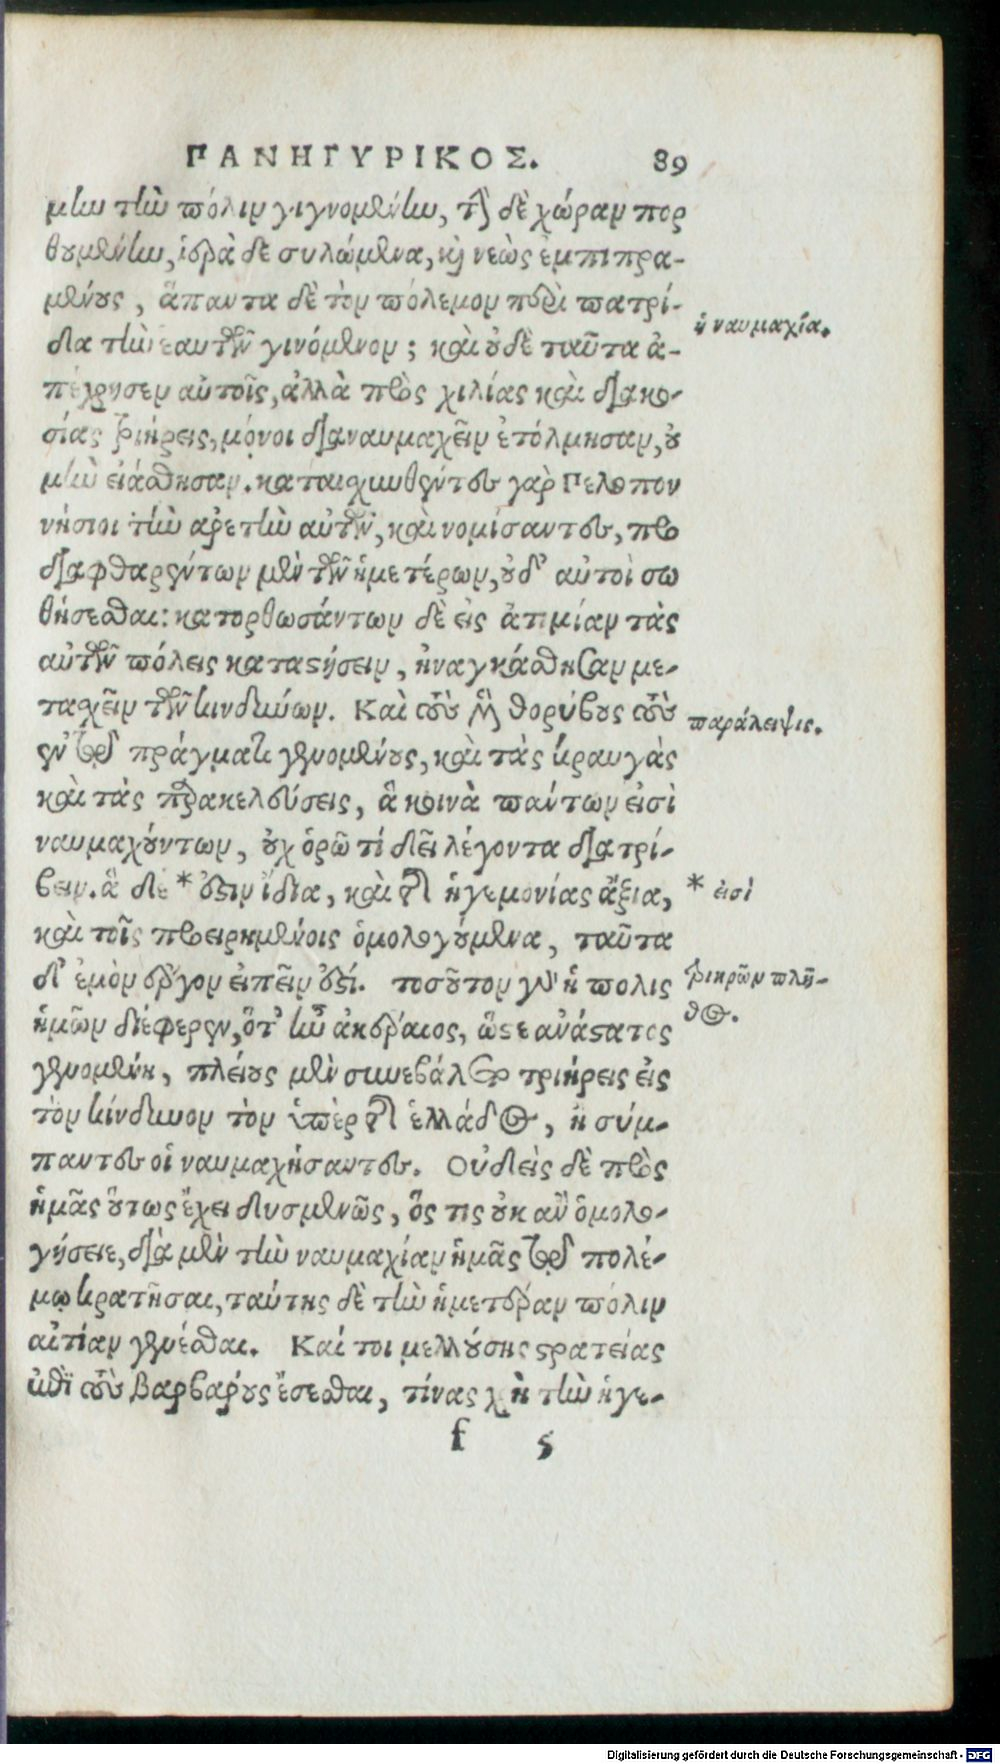 ΠΑΝΗΓΥΡΙΚΟΣ. 89
μην τὴν πόλιν γιγνομένην, τὴν δὲ χώραν πορ
θουμένην, ἱερὰ δὲ συλώμενα, καὶ νεὼς ἐμπιπρα-
μένους, ἅπαντα δὲ τὸν πόλεμον περὶ πατρί-
δα τὴν ἑαυτῶν γινόμενον; καὶ οὐδὲ ταῦτα ἀ-
πέχρησεν αὐτοῖς, ἀλλὰ πρὸς χιλίας καὶ διακο-
σίας τριήρεις, μόνοι διαναυμαχεῖν ἐτόλμησαν, οὐ
μὴν εἰάθησαν. καταισχυνθέντες γὰρ Πελοπον
νήσιοι τὴν ἀρετὴν αὐτῶν, καὶ νομίσαντες, προ
διαφθαρέντων μὲν τῶν ἡμετέρων, οὐδ' αὐτοὶ σω
θήσεσθαι: κατορθωσάντων δὲ εἰς ἀτιμίαν τὰς
αὑτῶν πόλεις καταστήσειν, ἠναγκάσθησαν με-
τασχεῖν τῶν κινδύνων. Καὶ τοὺς μὲν θορύβους τοὺς
ἐν τῷ πράγματι γενομένους, καὶ τὰς κραυγὰς
καὶ τὰς παρακελεύσεις, ἃ κοινὰ πάντων εἰσὶ
ναυμαχούντων, οὐχ ὁρῶ τί δεῖ λέγοντα διατρί-
βειν. ἃ δὲ * ἐστιν ἴδια, καὶ τῆς ἡγεμονίας ἄξια,
καὶ τοῖς προειρημένοις ὁμολογούμενα, ταῦτα
δ' ἐμὸν ἔργον εἰπεῖν ἐστί. τοσοῦτον γὰρ ἡ πόλις
ἡμῶν διέφερεν, ὅτ' ἦν ἀκέραιος, ὥστε ἀνάστατος
γενομένη, πλείους μὲν συνεβάλετο τριήρεις εἰς
τὸν κίνδυνον τὸν ὑπὲρ τῆς ἑλλάδος, ἢ σύμ-
παντες οἱ ναυμαχήσαντες. Οὐδεὶς δὲ πρὸς
ἡμᾶς οὕτως ἔχει δυσμενῶς, ὅς τις οὐκ ἂν ὁμολο-
γήσειε, διὰ μὲν τὴν ναυμαχίαν ἡμᾶς τῷ πολέ-
μῳ κρατῆσαι, ταύτης δὲ τὴν ἡμετέραν πόλιν
αἰτίαν γενέσθαι. Καί τοι μελλούσης στρατείας
ἐπὶ τοὺς βαρβάρους ἔσεσθαι, τίνας χρὴ τὴν ἡγε-
f 5
ἡ ναυμαχία.
παράλειψις.
* εἰσὶ
τριηρῶν πλῆ-
θος.
Digitalisierung gefördert durch die Deutsche Forschungsgemeinschaft - DFG